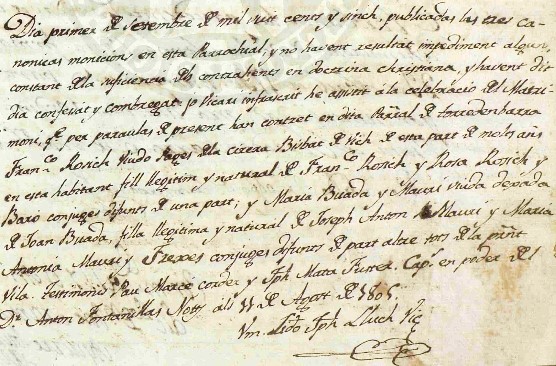 Dia primer de Setembre de mil vuit cents y sinch, publicadas las tres ca-
nonicas monicions en esta Parroquial, y no havent resultat impediment algun,
constant de la suficiencia dels contrahents en doctrina christiana, y havent dit
dia confesat y combregat: jo Vicari infrascrit he assistit a la celebracio del Matri-
moni, qe per paraulas de present han contret en dita Parrāl de Torredenbarra
Franco Rosich viudo Pages de la Bisbat de Vich de esta part de molts añs
en esta habitant fill llegitim y natural de Franco Rosich y Rosa Rosich y
Baró conjuges difunts de una part; y Maria Buada y Mauri viuda deixada
de Joan Buada, filla llegitima y natural de Joseph Anton Mauri y Maria
Antonia Mauri y Frexes conjuges difunts de part altre tots de la pñt
Vila. Testimonis Pau Mercé corder y Jph Mata Fuster. Cap. en poder del
Dr Anton Fontanillas Notr als 11 de Agost de 1805.
Jph Lluch Vic